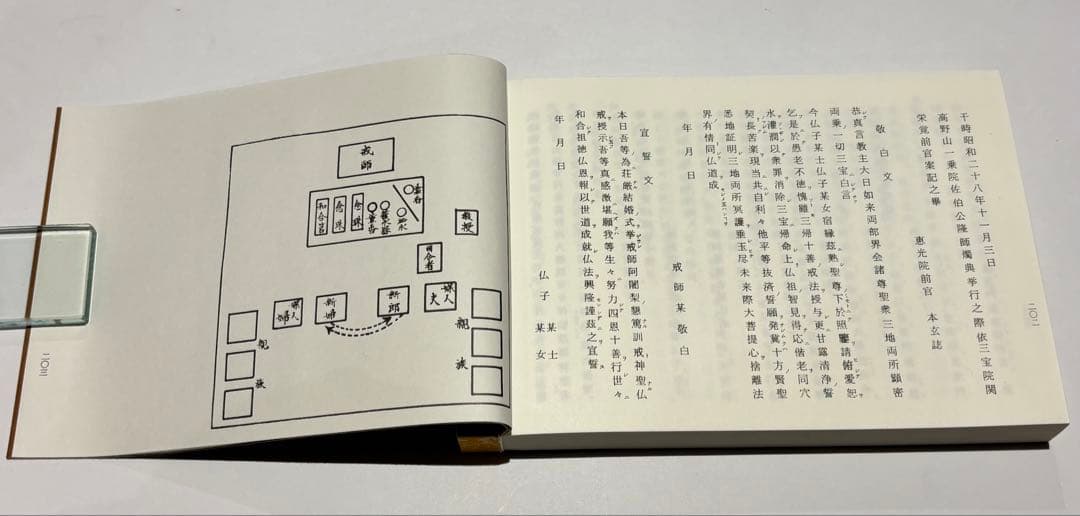 干時昭和二十八年十一月三日
高野山一乗院佐伯公隆師燭典挙行之際依三宝院関
栄覚前官案記之畢
恵光院前官 本玄誌
敬白文
恭真言教主大日如来両部界会諸尊聖衆三地両所顕密
両乗一切三宝白言
今仏子某士仏子某女宿縁茲熟聖尊下於照鑒請俯愛恕
乞是於愚老不徳愧雖三帰十善戒法授与更甘露清浄誓
水灌潤以衆罪消除三宝帰命上仏祖智見得応偕老同穴
契長苦楽現当共自利々他平等抜済誓願発冀十方賢聖
悉地証明三地両所冥護垂玉尽未来際大菩提心捨離法
界有情同仏道成
年月日
戒師某敬白
宣誓文
本日吾等為荘厳結婚式挙戒師阿闍梨懇篤訓戒神聖仏
戒授示吾等真感激堪願我等生々努力四恩十善行世々
和合祖徳仏恩報以世道成就仏法興隆謹茲之宣誓
年月日
仏子 某士
某女
二〇二
戒師
香
洒水
念珠
念珠
和合品
教授
司会者
媒人 夫
新郎
新婦
媒人 婦
親族
親族
二〇三